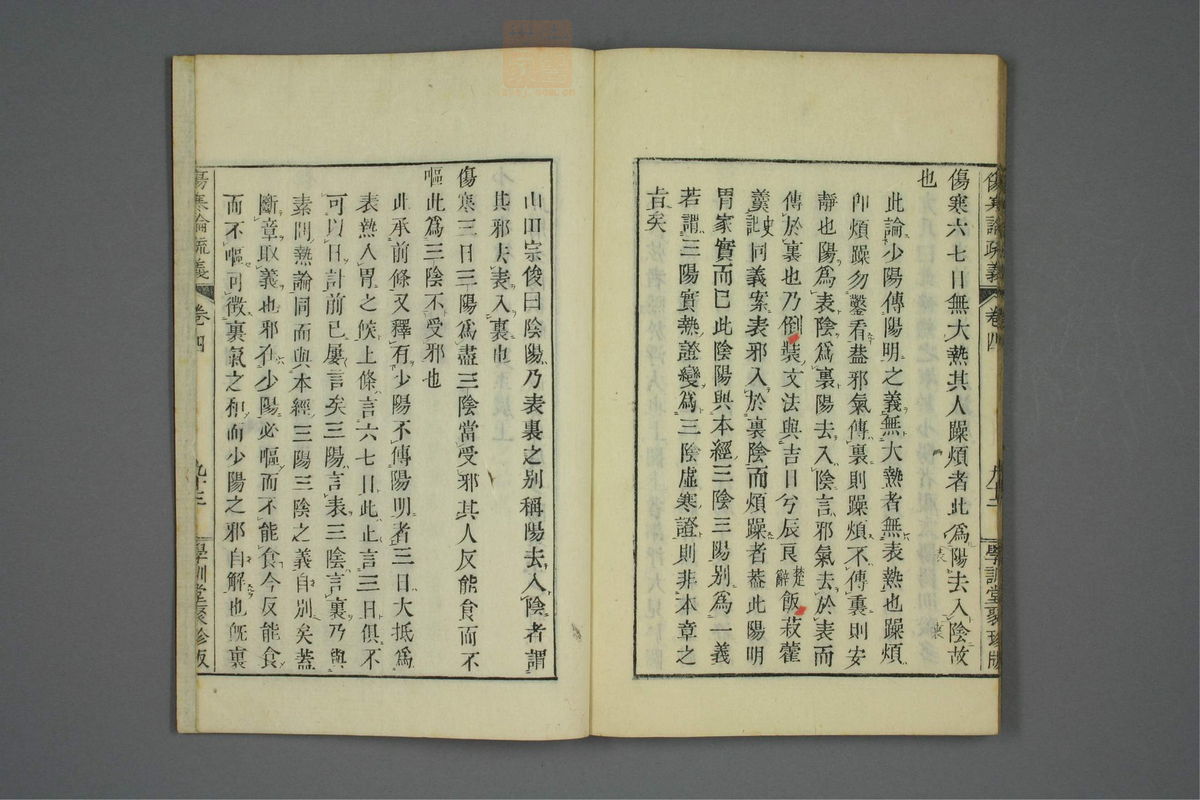 傷寒論疏義 卷四 九十二 學訓堂聚珍版
傷寒六七日無大熱其人躁煩者此爲陽去入陰故
也
此論少陽傳陽明之義無大熱者無表熱也躁煩
卽煩躁勿鑿看蓋邪氣傳裏則躁煩不傳裏則安
靜也陽爲表陰爲裏陽去入陰言邪氣去於表而
傳於裏也乃倒裝文法與吉日兮辰良楚辭飯菽藿
羹史記同義案表邪入於裏陰而煩躁者蓋此陽明
胃家實而已此陰陽與本經三陰三陽別爲一義
若謂三陽實熱證變爲三陰虛寒證則非本章之
旨矣
山田宗俊曰陰陽乃表裏之別稱陽去入陰者謂
其邪去表入裏也
傷寒三日三陽爲盡三陰當受邪其人反能食而不
嘔此爲三陰不受邪也
此承前條又釋有少陽不傳陽明者三日大抵爲
表熱入胃之候上條言六七日此止言三日俱不
可以日計前已屢言矣三陽言表三陰言裏乃與
素問熱論同而與本經三陽三陰之義自別矣蓋
斷章取義也邪在少陽必嘔而不能食今反能食
而不嘔可徵裏氣之和而少陽之邪自解也旣裏
傷寒論疏義 卷四 九十三 學訓堂聚珍版